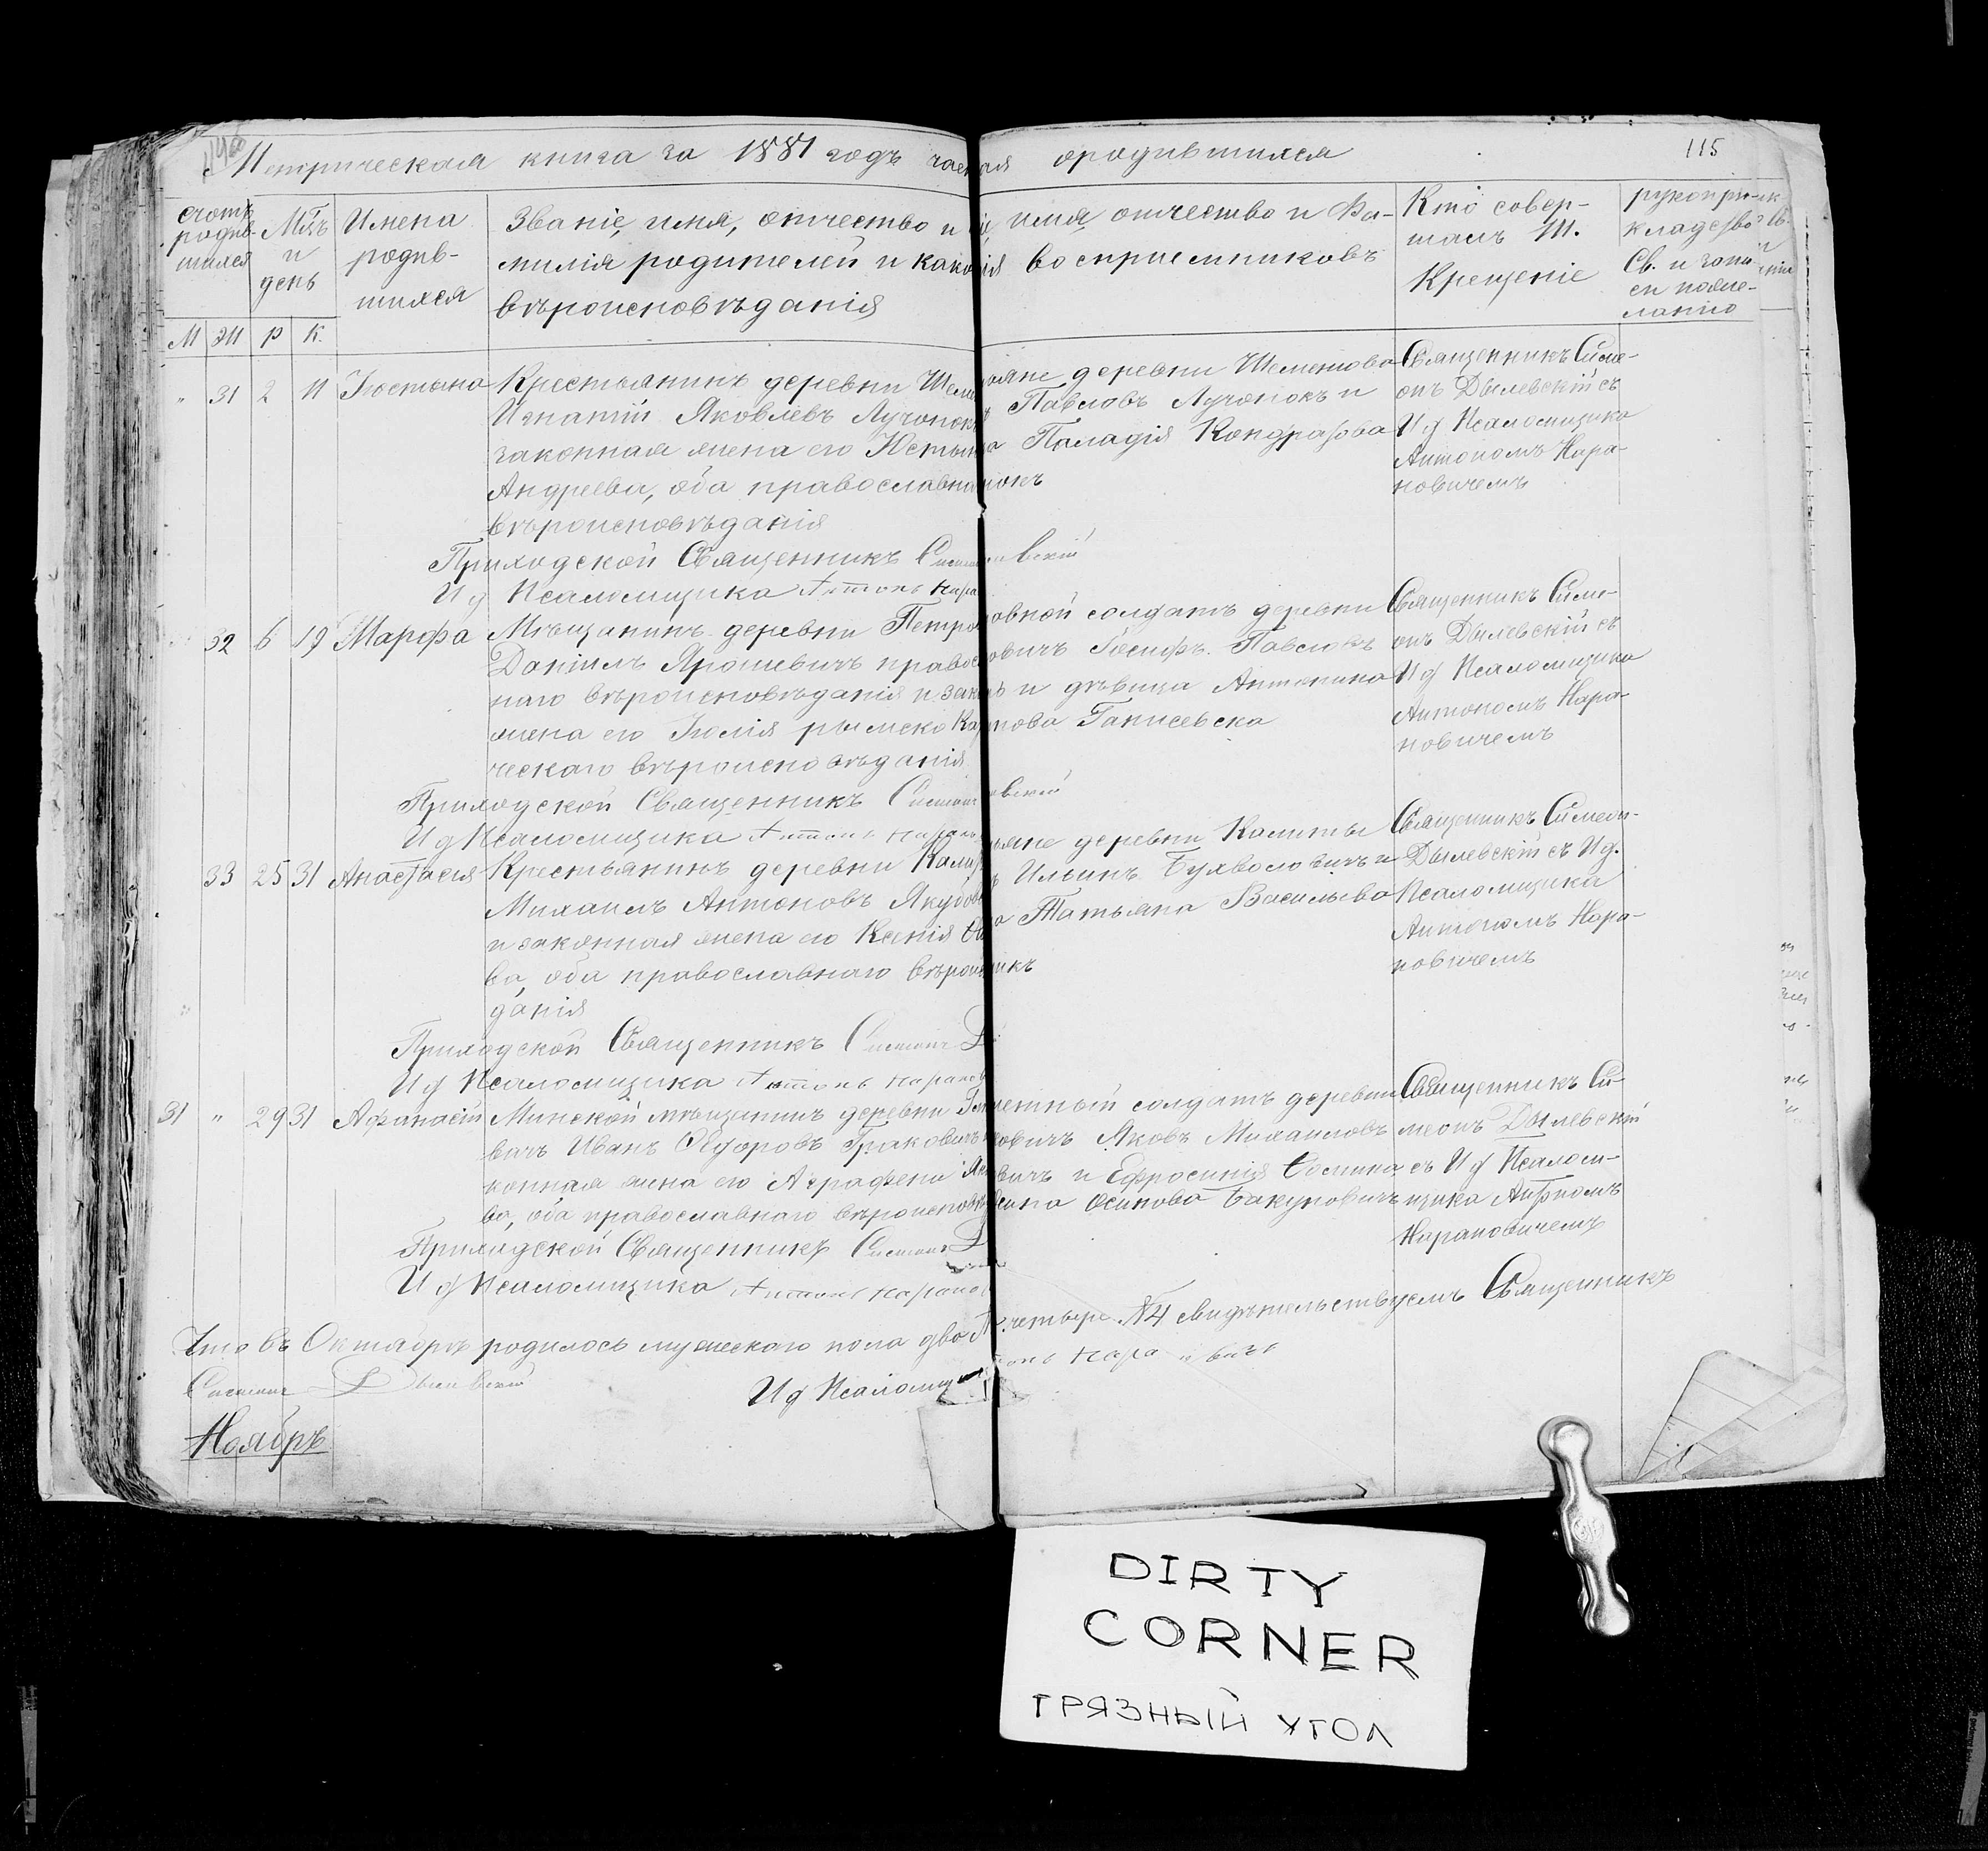 Метрическая книга за 1881 годъ
ая ородившихся
115
счотъ родив-шихся
М Ж
Мцъ и день
Р К.
Имена родив-шихся
Званіе, имя, отчество и
милія родителей и како
вѣроисповѣданія
имя отчество и Фа-
воспріемниковъ
Кто совер-
шалъ Т.
Крещеніе
рукопри-
кладство
Св. и запи
си поже-
ланію
" 31 2 11 Іюстына
Крестьянинъ деревни Шем
Игнатій Яковлевъ Лучонокъ
законная жена его Юстын
Андреева, оба православна
вѣроисповѣданія
яне деревни Шеметова
Павловъ Лучонокъ и
а Паладія Кондратова
нокъ
Священникъ Симе-
онъ Дылевскій съ
И д Псаломщика
Антономъ Нара-
новичемъ
Приходской Священникъ Симеон
вскій
И д Псаломщика Антонъ Нара
32 6 19 Марфа
Мѣщанинъ деревни Петро
Даніилъ Ярошевичъ правос
наго вѣроисповѣданія и зак
жена его Іюлія рымско Ка
ческаго вѣроисповѣданія
овной солдатъ деревни
овичъ Іосифъ Павловъ
ъ и дѣвица Антонина
това Ганисевска
Священникъ Симе-
онъ Дылевскій съ
И д Псаломщика
Антономъ Нара-
новичемъ
Приходской Священникъ Симеон
вскій
И д Псаломщика Антонъ Наран
33 25 31 Анастасія
Крестьянинъ деревни Кали
Михаилъ Антоновъ Якубов
и законная жена его Ксенія
ва, оба православнаго вѣроис
данія
яне деревни Калиты
ъ Ильинъ Бухволовичъ и
а Татьяна Васильева
икъ
Священникъ Симеон-
Дылевскій съ И д.
Псаломщика
Антономъ Нара-
новичемъ
Приходской Священникъ Симеонъ Д
И д Псаломщика Антонъ Наранов
31 " 29 31 Афанасій
Минской мѣщанинъ деревни
вичъ Иванъ Ѳедоровъ Гракович
конная жена его Аграфена Як
ва, оба православнаго вѣроисповѣ
етный солдатъ деревни
овичъ Яковъ Михаиловъ
вичъ и Ефросинія
Осипова Бакуновичъ
Священникъ Си-
меонъ Дылевскій
съ И д Псалом-
щика Антономъ
Нарановичемъ
Приходской Священникъ Симеонъ Д
И д Псаломщика Антонъ Нарано
Что въ Октябрѣ родилось мужескаго пола
четыре №4 свидѣтельствуемъ Священникъ
Симеонъ Дылевскій
И д Псаломщ
онъ Нарановичъ
Ноябрь
DIRTY
CORNER
ГРЯЗНЫЙ УГОЛ